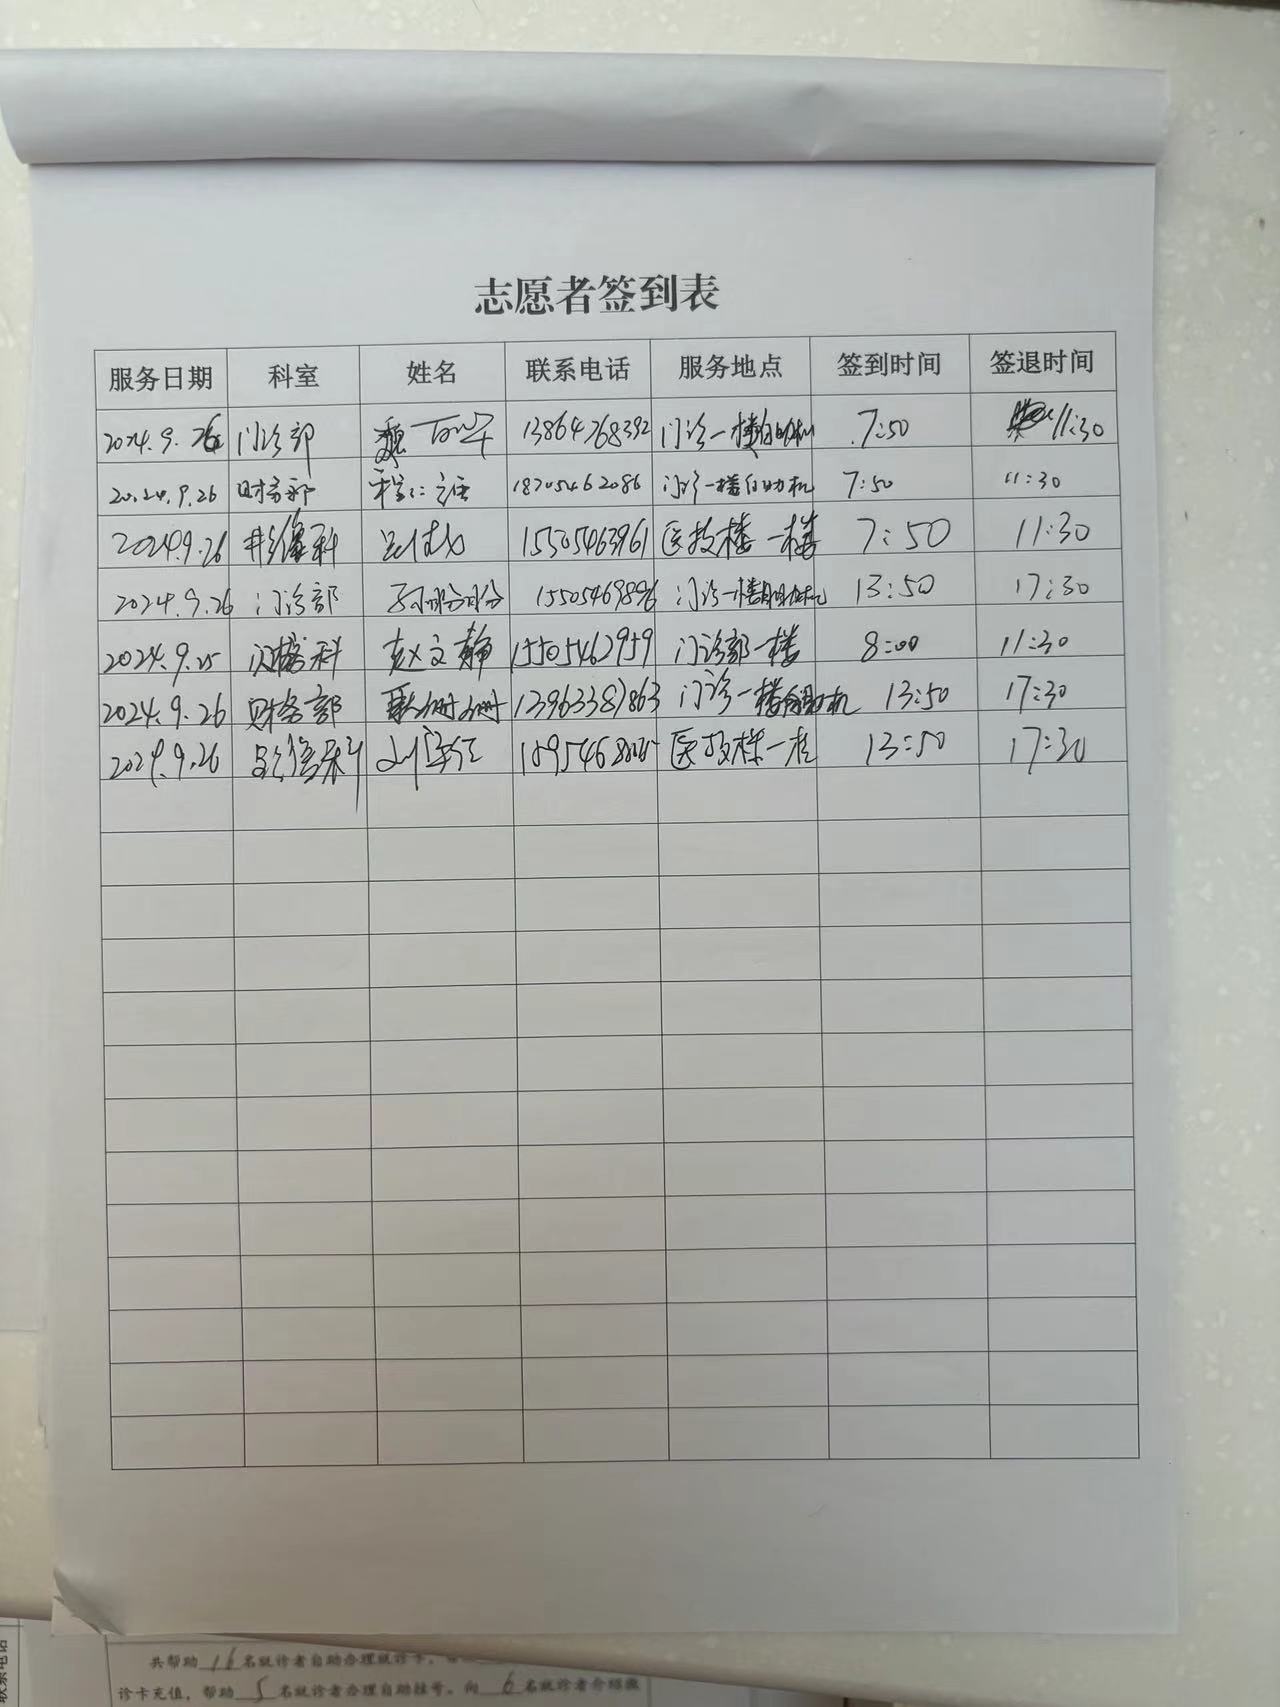 志愿者签到表
服务日期 科室 姓名 联系电话 服务地点 签到时间 签退时间
2024.9.26 门诊部 13864268392 门诊一楼自助机 7:50 11:30
2024.9.26 财务部 18705462086 门诊一楼自助机 7:50 11:30
2024.9.26 影像科 15505463961 医技楼一楼 7:50 11:30
2024.9.26 门诊部 孙盼盼 15505469896 门诊一楼自助机 13:50 17:30
2024.9.25 赵文静 15505462959 门诊部一楼 8:00 11:30
2024.9.26 财务部 13963387863 门诊一楼自助机 13:50 17:30
2024.9.26 影像科 医技楼一楼 13:50 17:30
共帮助16名就诊者自助办理就诊卡,
诊卡充值,帮助5名就诊者办理自助挂号。向6名就诊者介绍缴
联系电话